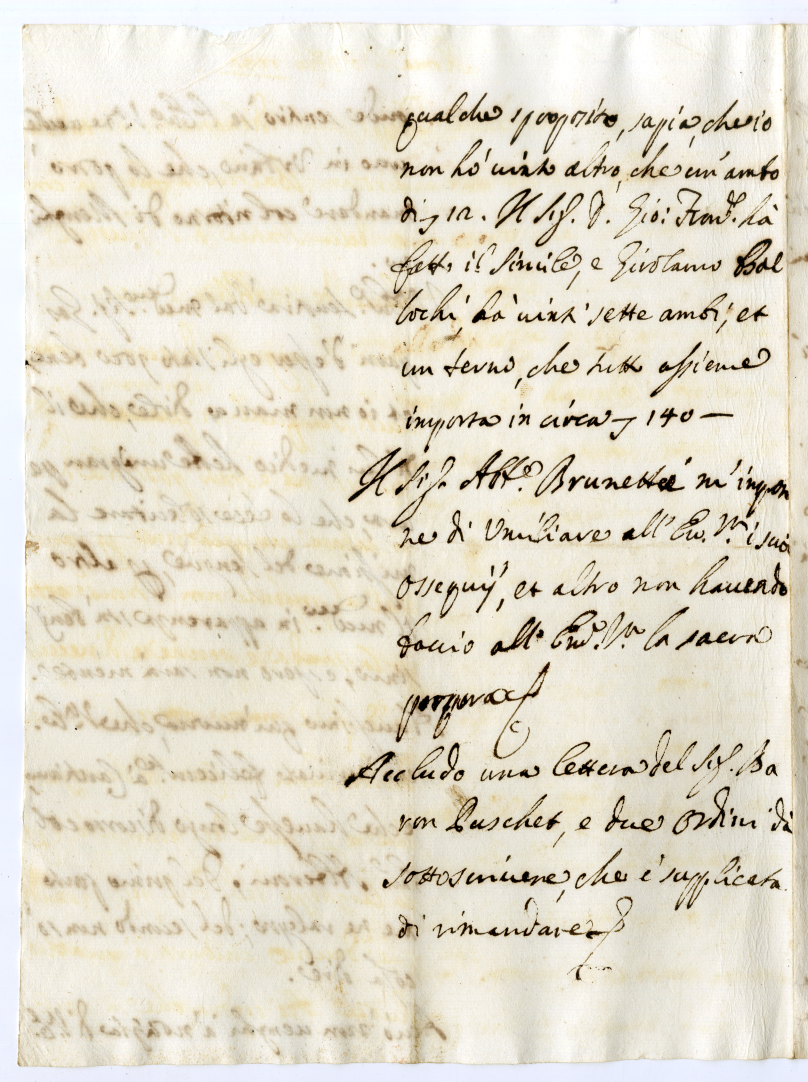 qualche sproposito, sapia, che io
non hò uinto altro, che un'ambo
di 12. Il Sig. D. Gio: Fran. hà
fatto il simile, e Girolamo Bal
lochi, hà uinti sette ambi, et
un terno, che tutto assieme
importa in circa 140 —
Il Sig. Abb.e Brunetti m'impon
ne di Umiliare all' Em. V.ra i suoi
ossequij, et altro non hauendo
faccio all' Em. V.ra la sacra
porpora
Accludo una lettera del Sig. Ba
ron Puschet, e due ordini da
sottoscriuere, che è supplicata
di rimandare